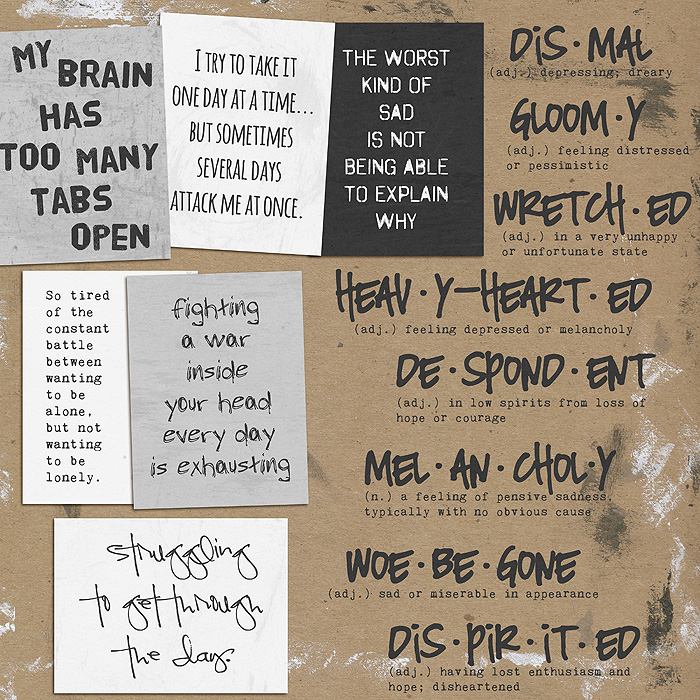 MY
BRAIN
HAS
TOO MANY
TABS
OPEN
I TRY TO TAKE IT
ONE DAY AT A TIME...
BUT SOMETIMES
SEVERAL DAYS
ATTACK ME AT ONCE.
THE WORST
KIND OF
SAD
IS NOT
BEING ABLE
TO EXPLAIN
WHY
So tired
of the
constant
battle
between
wanting
to be
alone,
but not
wanting
to be
lonely.
fighting
a war
inside
your head
every day
is exhausting
struggling
to get through
the day.
DiS·MAL
(adj.) depressing; dreary
GLOOM·Y
(adj.) feeling distressed
or pessimistic
WRETCH·ED
(adj.) in a very unhappy
or unfortunate state
HEAV·Y-HEART·ED
(adj.) feeling depressed or melancholy
DE·SPOND·ENT
(adj.) in low spirits from loss of
hope or courage
MEL·AN·CHOL·Y
(n.) a feeling of pensive sadness,
typically with no obvious cause
WOE·BE·GONE
(adj.) sad or miserable in appearance
DiS·PiR·iT·ED
(adj.) having lost enthusiasm and
hope; disheartened